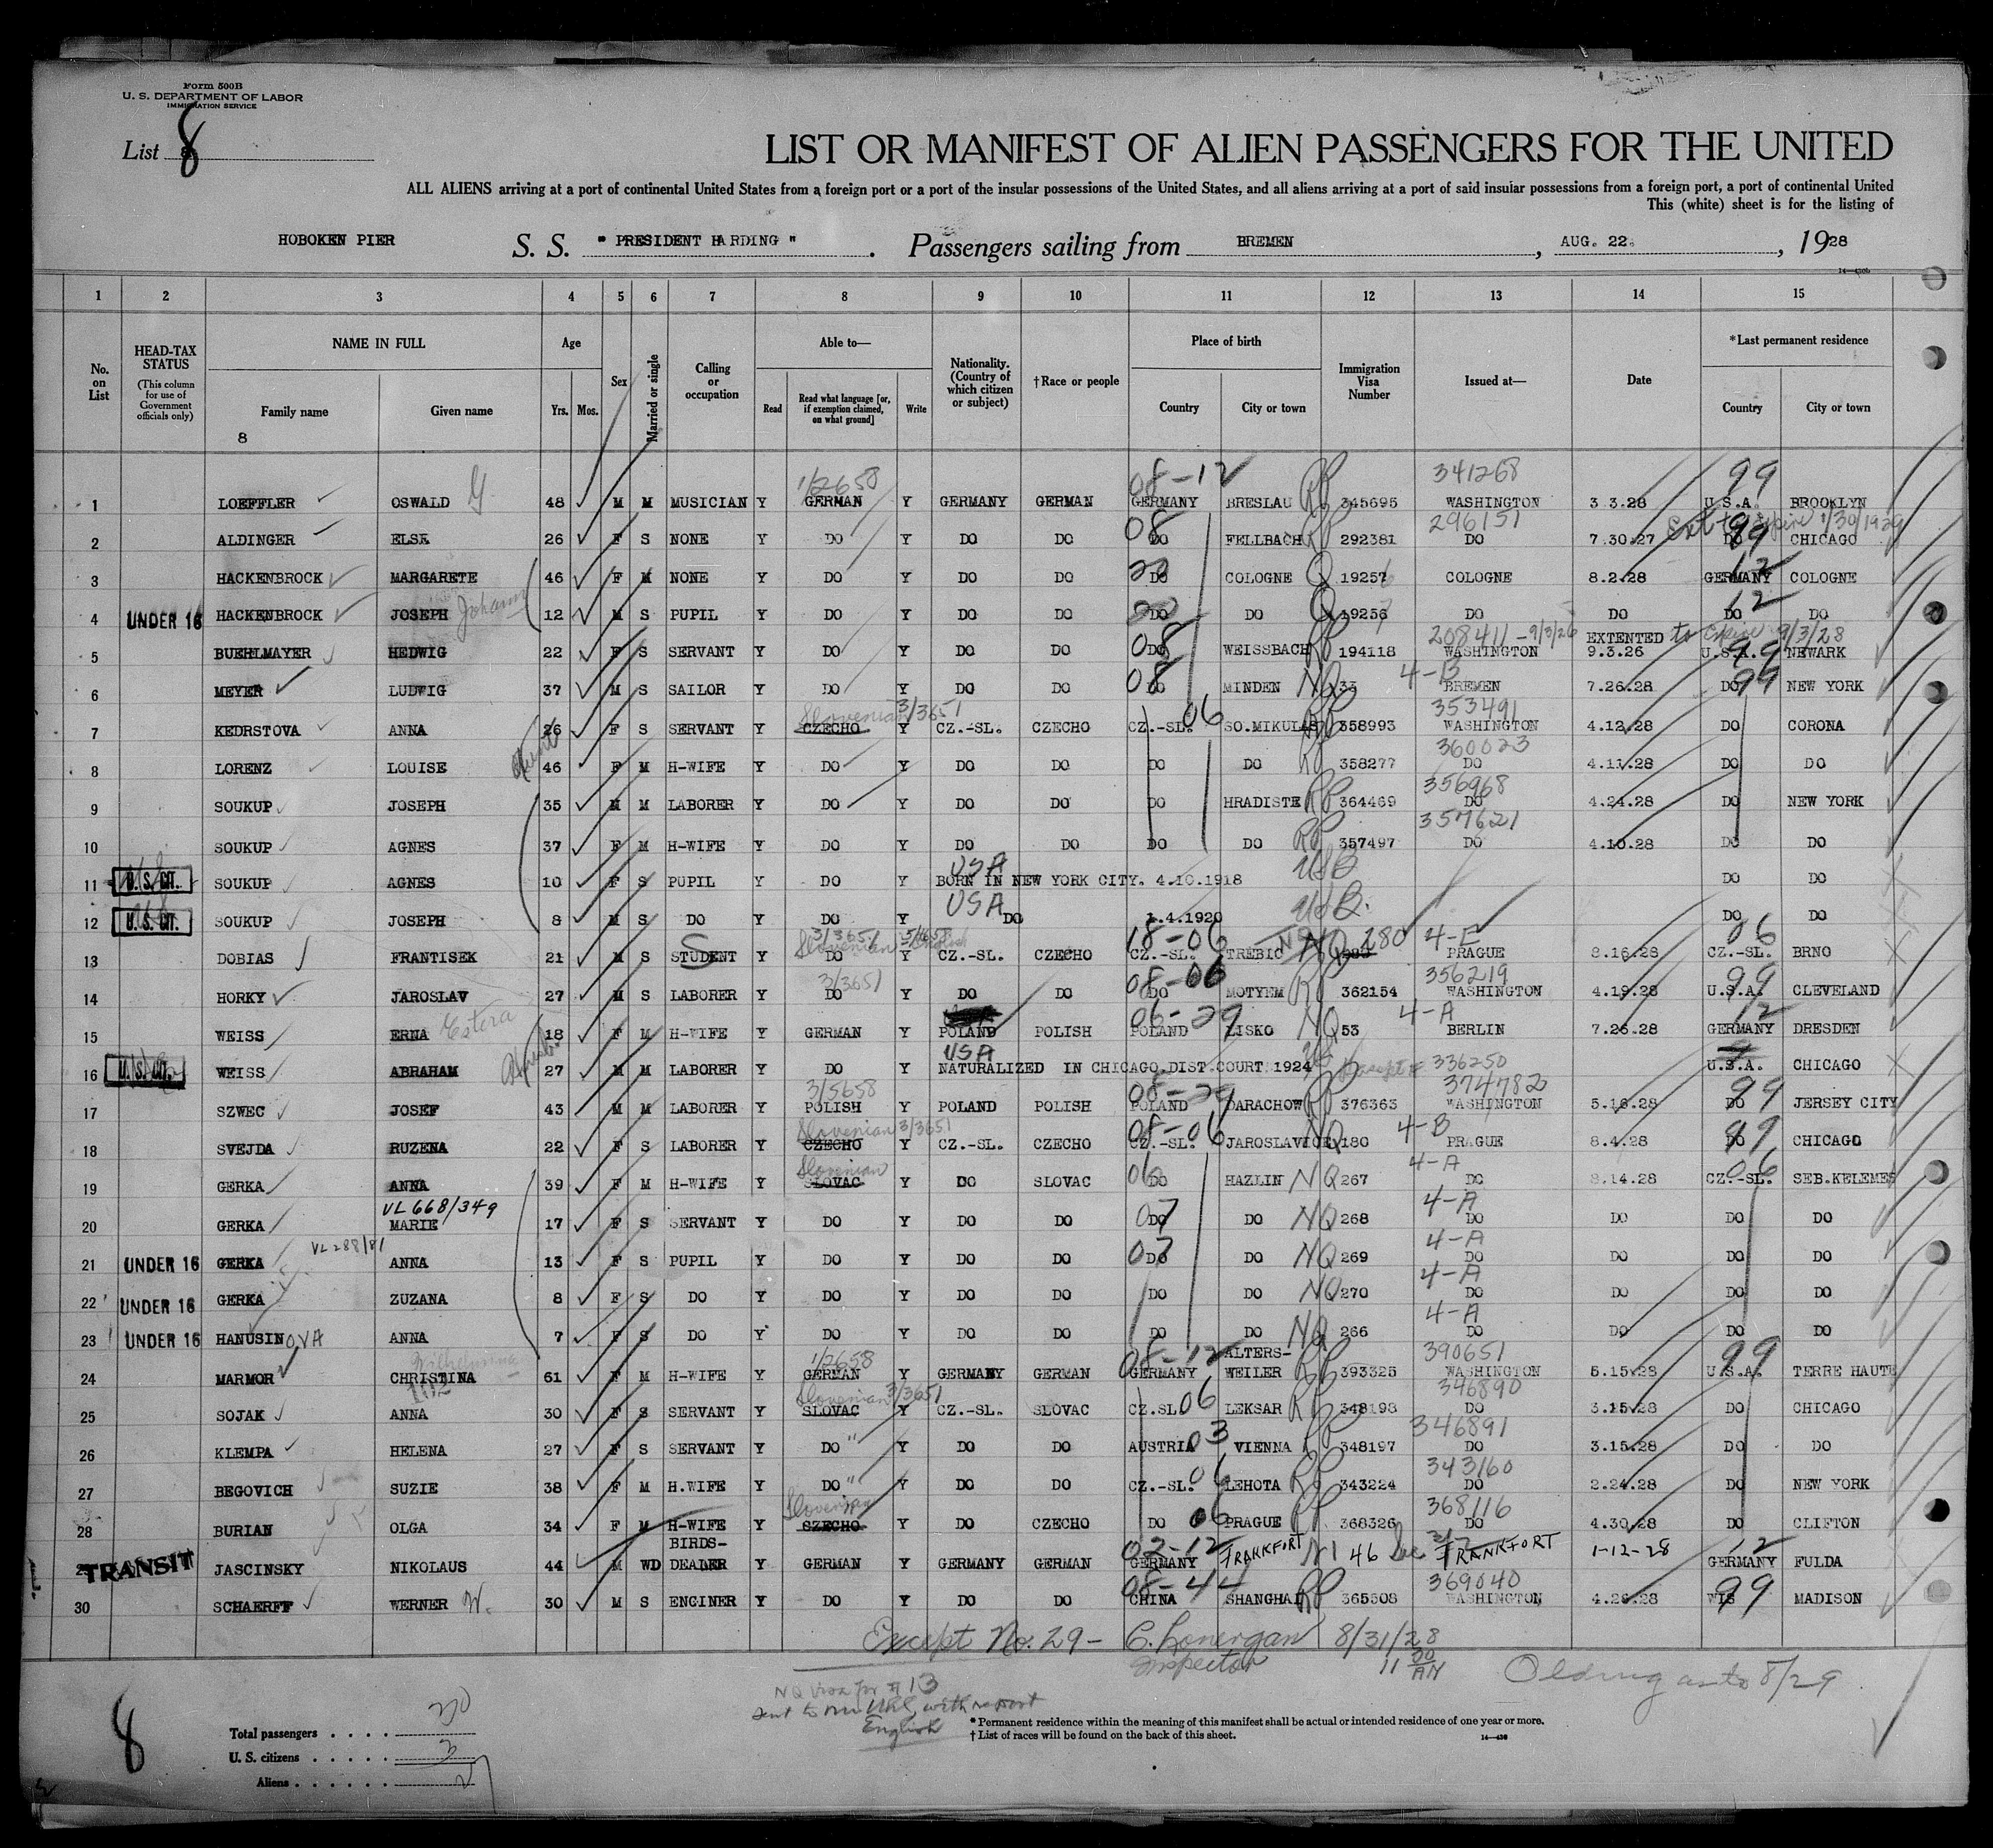 Form 500B
U. S. DEPARTMENT OF LABOR
IMMIGRATION SERVICE
List 8
LIST OR MANIFEST OF ALIEN PASSENGERS FOR THE UNITED
ALL ALIENS arriving at a port of continental United States from a foreign port or a port of the insular possessions of the United States, and all aliens arriving at a port of said insular possessions from a foreign port, a port of continental United
This (white) sheet is for the listing of
HOBOKEN PIER S. S. " PRESIDENT HARDING " . Passengers sailing from BREMEN , AUG. 22. , 1928
1 2 3 4 5 6 7 8 9 10 11 12 13 14 15
No. on List HEAD-TAX STATUS (This column for use of Government officials only) NAME IN FULL Age Sex Married or single Calling or occupation Able to— Nationality. (Country of which citizen or subject) †Race or people Place of birth Immigration Visa Number Issued at— Date *Last permanent residence
Family name Given name Yrs. Mos. Read Read what language [or, if exemption claimed, on what ground] Write Country City or town Country City or town
8
08-12 341268 99
1/2658
1 LOEFFLER OSWALD G. 48 M M MUSICIAN Y GERMAN Y GERMANY GERMAN GERMANY BRESLAU RP 345695 WASHINGTON 3.3.28 U.S.A. BROOKLYN
08 296151 Ext to expire 1/30/1929
2 ALDINGER ELSE 26 F S NONE Y DO Y DO DO DO FELLBACH RP 292381 DO 7.30.27 DO 99 CHICAGO
3 HACKENBROCK MARGARETE 46 F M NONE Y DO Y DO DO DO COLOGNE Q 19257 COLOGNE 8.2.28 GERMANY 12 COLOGNE
4 UNDER 16 HACKENBROCK JOSEPH Johann 12 M S PUPIL Y DO Y DO DO DO DO Q 19256 DO DO DO 12 DO
208411-9/3/26 EXTENTED to expire 9/3/28
5 BUEHLMAYER HEDWIG 22 F S SERVANT Y DO Y DO DO DO 08 WEISSBACH RP 194118 WASHINGTON 9.3.26 U.S.A. 99 NEWARK
6 MEYER LUDWIG 37 M S SAILOR Y DO Y DO DO DO 08 MINDEN NQ 33 4-B BREMEN 7.26.28 DO 99 NEW YORK
Slovenian 3/3651 06 353491
7 KEDRSTOVA ANNA 26 F S SERVANT Y CZECHO Y CZ.-SL. CZECHO CZ.-SL. SO.MIKULAS RP 358993 WASHINGTON 4.12.28 DO CORONA
360023
8 LORENZ LOUISE Aunt 46 F M H-WIFE Y DO Y DO DO DO DO RP 358277 DO 4.11.28 DO DO
356968
9 SOUKUP JOSEPH 35 M M LABORER Y DO Y DO DO DO HRADISTE RP 364469 DO 4.24.28 DO NEW YORK
357621
10 SOUKUP AGNES 37 F M H-WIFE Y DO Y DO DO DO DO RP 357497 DO 4.10.28 DO DO
USA USB
11 U. S. CIT. SOUKUP AGNES 10 F S PUPIL Y DO Y BORN IN NEW YORK CITY. 4.10.1918 DO DO
USA USB.
12 U. S. CIT. SOUKUP JOSEPH 8 M S DO Y DO Y DO 1.4.1920 DO DO
3/3651 Slovenian 18-06 4-E 06
13 DOBIAS FRANTISEK 21 M S STUDENT Y DO Y CZ.-SL. CZECHO CZ.-SL. TREBIC NQ 280 PRAGUE 8.16.28 CZ.-SL. BRNO
3/3651 08-06 356219 99
14 HORKY JAROSLAV 27 M S LABORER Y DO Y DO DO DO MOTYEM RP 362154 WASHINGTON 4.19.28 U.S.A. CLEVELAND
06-29 4-A 12
15 WEISS ERNA Estera 18 F M H-WIFE Y GERMAN Y POLAND POLISH POLAND LISKO NQ 53 BERLIN 7.26.28 GERMANY DRESDEN
USA 336250
16 U. S. CIT. WEISS ABRAHAM 27 M M LABORER Y DO Y NATURALIZED IN CHICAGO.DIST.COURT 1924 U.S.A. CHICAGO
3/5658 08-29 374782 99
17 SZWEC JOSEF 43 M M LABORER Y POLISH Y POLAND POLISH POLAND DARACHOW RP 376363 WASHINGTON 5.16.28 DO JERSEY CITY
Slovenian 3/3651 08-06 4-B 99
18 SVEJDA RUZENA 22 F S LABORER Y CZECHO Y CZ.-SL. CZECHO CZ.-SL. JAROSLAVICE NQ 180 PRAGUE 8.4.28 DO CHICAGO
Slovenian 06 4-A 06
19 GERKA ANNA 39 F M H-WIFE Y SLOVAC Y DO SLOVAC DO HAZLIN NQ 267 DO 8.14.28 CZ.-SL. SEB.KELEMES
VL 668/349 4-A
20 GERKA MARIE 17 F S SERVANT Y DO Y DO DO DO 07 DO NQ 268 DO DO DO DO
VL 288/81 4-A
21 UNDER 16 GERKA ANNA 13 F S PUPIL Y DO Y DO DO DO 07 DO NQ 269 DO DO DO DO
4-A
22 UNDER 16 GERKA ZUZANA 8 F S DO Y DO Y DO DO DO DO NQ 270 DO DO DO DO
4-A
23 UNDER 16 HANUSINOVA ANNA 7 F S DO Y DO Y DO DO DO DO NQ 266 DO DO DO DO
Wilhelmina 1/2658 08-12 390651 99
24 MARMOR CHRISTINA 61 F M H-WIFE Y GERMAN Y GERMANY GERMAN GERMANY ALTERS-WEILER RP 393325 WASHINGTON 5.15.28 U.S.A. TERRE HAUTE
Slovenian 3/3651 06 346890
25 SOJAK ANNA 30 F S SERVANT Y SLOVAC Y CZ.-SL. SLOVAC CZ.SL LEKSAR RP 348198 DO 3.15.28 DO CHICAGO
03 346891
26 KLEMPA HELENA 27 F S SERVANT Y DO " Y DO DO AUSTRIA VIENNA RP 348197 DO 3.15.28 DO DO
06 343160
27 BEGOVICH SUZIE 38 F M H.WIFE Y DO " Y DO DO CZ.-SL. LEHOTA RP 343224 DO 2.24.28 DO NEW YORK
Slovenian 06 368116
28 BURIAN OLGA 34 F M H-WIFE Y SZECHO Y DO CZECHO DO PRAGUE RP 368326 DO 4.30.28 DO CLIFTON
02-12 12
29 TRANSIT JASCINSKY NIKOLAUS 44 M WD BIRDS-DEALER Y GERMAN Y GERMANY GERMAN GERMANY FRANKFORT 46 FRANKFORT 1-12-28 GERMANY FULDA
08-44 369040 99
30 SCHAERFF WERNER W. 30 M S ENGINER Y DO Y DO DO CHINA SHANGHAI RP 365508 WASHINGTON 4.26.28 WIS MADISON
Except No. 29 - C. Lonergan 8/31/28
Inspector 11 30 AM
NQ Visa for #13
sent to with report
English
8
Total passengers . . . . 30
U. S. citizens . . . . . 3
Aliens . . . . . . 27
* Permanent residence within the meaning of this manifest shall be actual or intended residence of one year or more.
† List of races will be found on the back of this sheet.